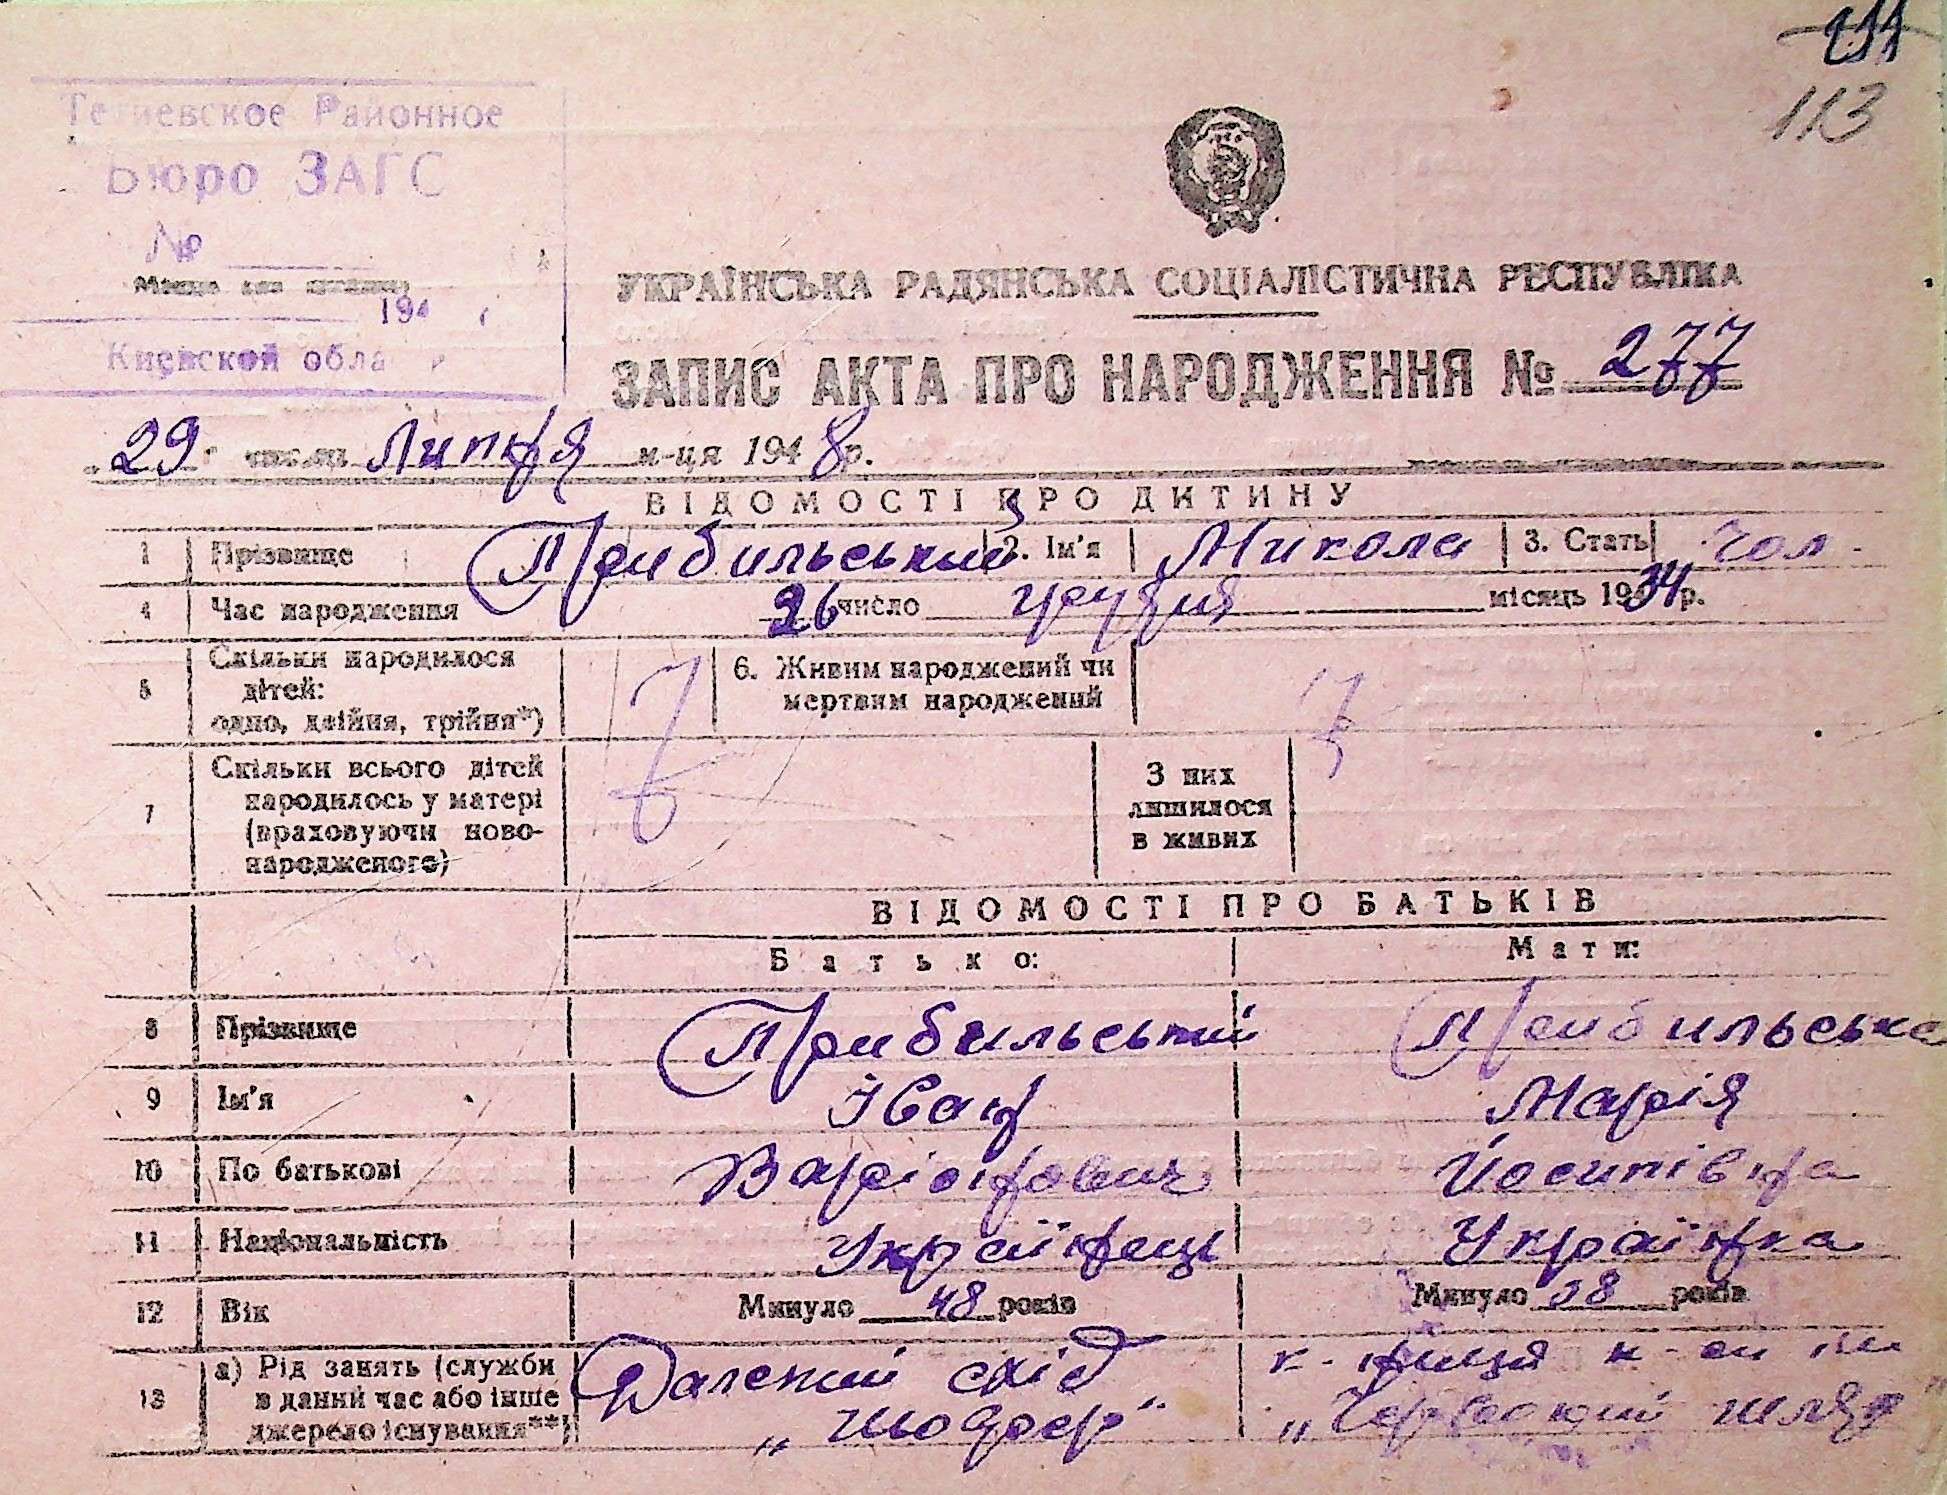 113
Тетиевское Районное
Бюро ЗАГС
№
194
Киевской обла
УКРАЇНСЬКА РАДЯНСЬКА СОЦІАЛІСТИЧНА РЕСПУБЛІКА
ЗАПИС АКТА ПРО НАРОДЖЕННЯ № 277
29 числа Липня м-ця 1948 р.
ВІДОМОСТІ ПРО ДИТИНУ
1 Прізвище Прибильський 2. Ім'я Микола 3. Стать чол.
4 Час народження 26 число грудня місяць 1934 р.
5 Скільки народилося дітей: одно, двійня, трійня*) 6. Живим народжений чи мертвим народжений
7 Скільки всього дітей народилось у матері (враховуючи новонародженого) З них лишилося в живих
ВІДОМОСТІ ПРО БАТЬКІВ
Батько: Мати:
8 Прізвище Прибильський Прибильська
9 Ім'я Іван Марія
10 По батькові Варіонович Йосипівна
11 Національність Українець Українка
12 Вік Минуло 48 років Минуло 38 років
13 а) Рід занять (служби в даний час або інше джерело існування**) Далекий схід „шофер" к-ниця к-пи ім „Червоний шлях"